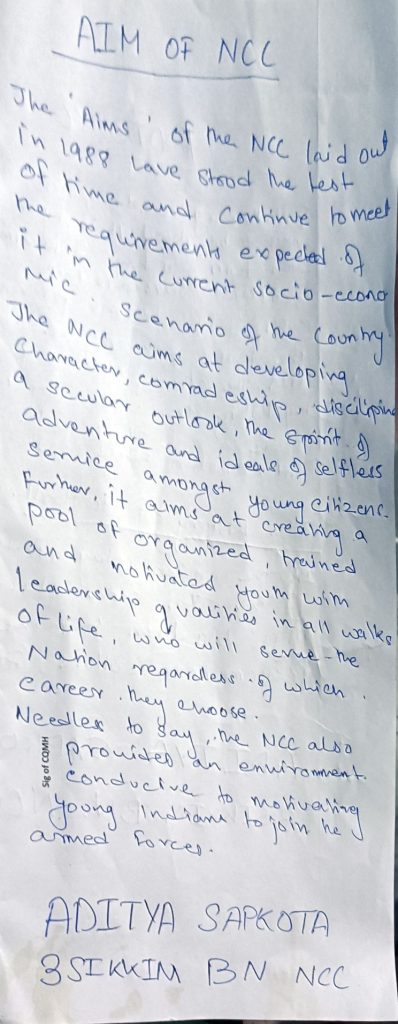 AIM OF NCC
The 'Aims' of the NCC laid out
in 1988 have stood the test
of time and continue to meet
the requirements expected of
it in the current socio-econo
mic scenario of the country.
The NCC aims at developing
Character, comradeship, discilipine
a secular outlook, the spirit of
adventure and ideals of selfless
service amongst young citizens.
Further, it aims at creating a
pool of organized, trained
and motivated youth with
leadership qualities in all walks
of Life, who will serve the
Nation regardless of which
career they choose.
Needles to say, the NCC also
provides an environment
conducive to motivating
young Indians to join he
armed forces.
Sig of CQMH
ADITYA SAPKOTA
3SIKKIM BN NCC